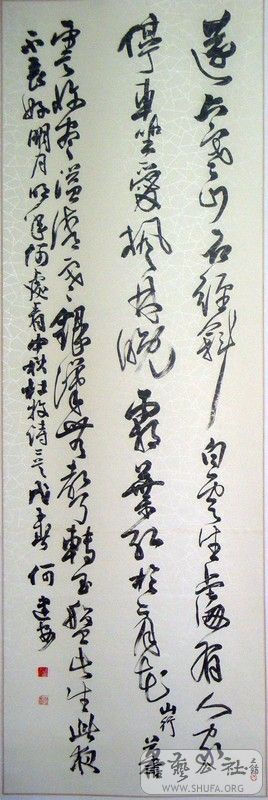 遠上寒山石徑斜白雲生處有人家
停車坐愛楓林晚霜葉紅於二月花山行暮
雲收盡溢清寒銀漢無聲轉玉盤此生此夜
不長好明月明年何處看中秋杜牧诗戊春何
藝公社
WWW.SHUFA.ORG